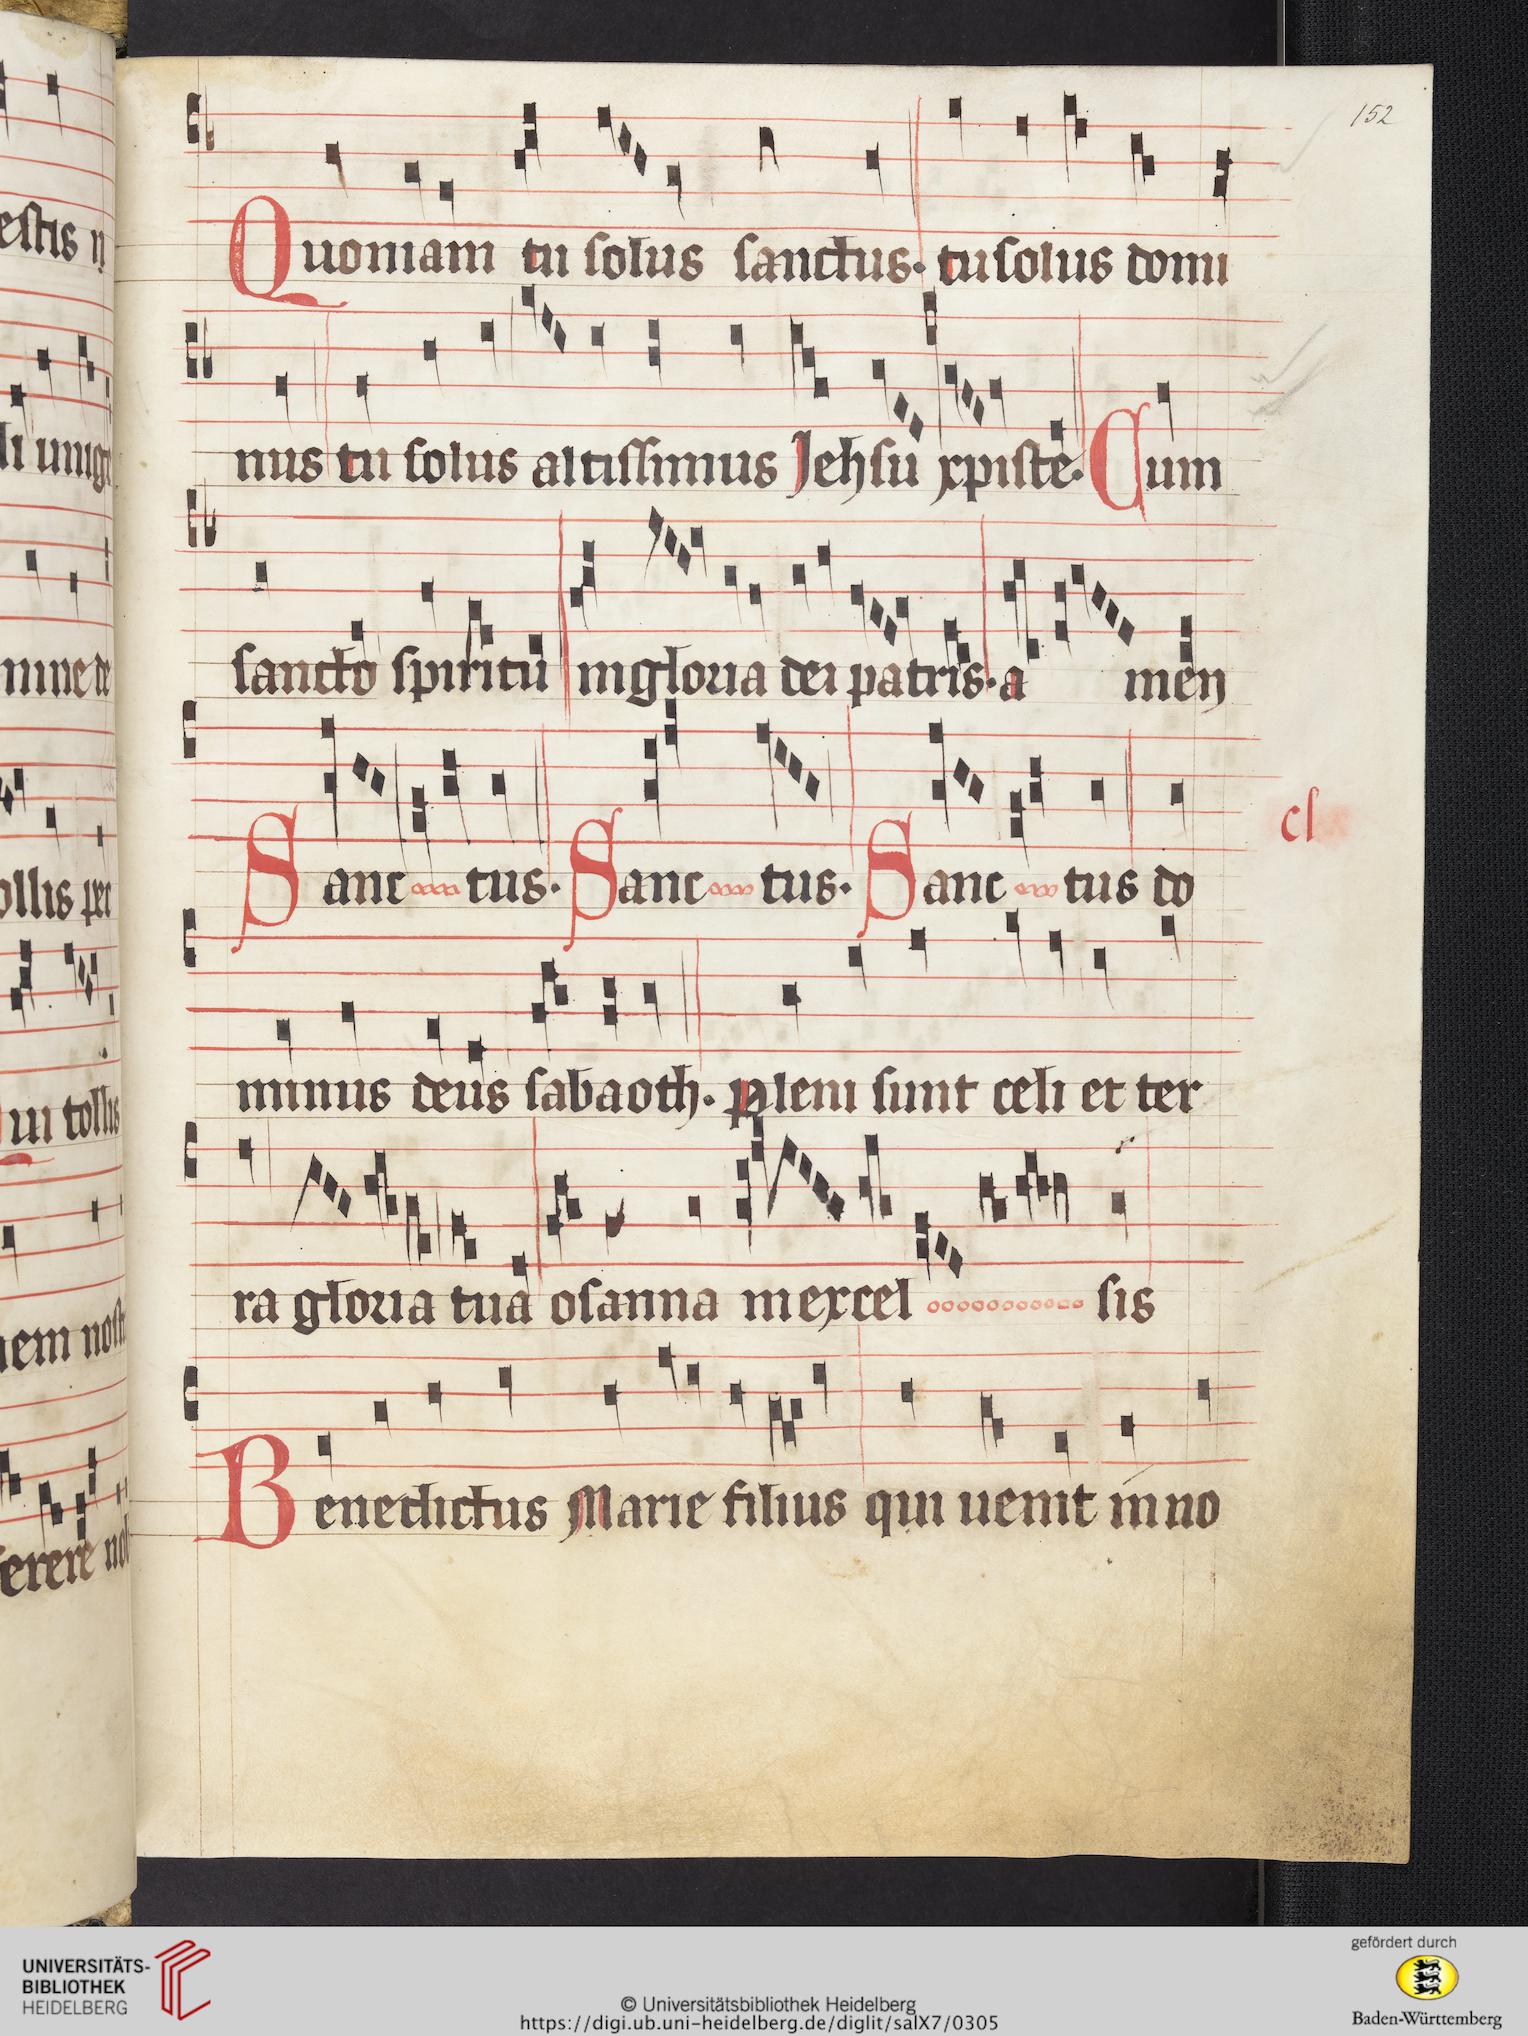 152
Quoniam tu solus sanctus· tu solus domi
nus tu solus altissimus Jehsu xpiste· Cum
sancto spiritu in gloria dei patris· a men
Sanc tus· Sanc tus· Sanc tus do
cl
minus deus sabaoth· pleni sunt celi et ter
ra gloria tua osanna in excel sis
Benedictus Marie filius qui uenit in no
estis
li unige
ollis pec
ui tollis
nem nost
serere nob
UNIVERSITÄTS-
BIBLIOTHEK
HEIDELBERG
© Universitätsbibliothek Heidelberg
https://digi.ub.uni-heidelberg.de/diglit/salX7/0305
gefördert durch
Baden-Württemberg